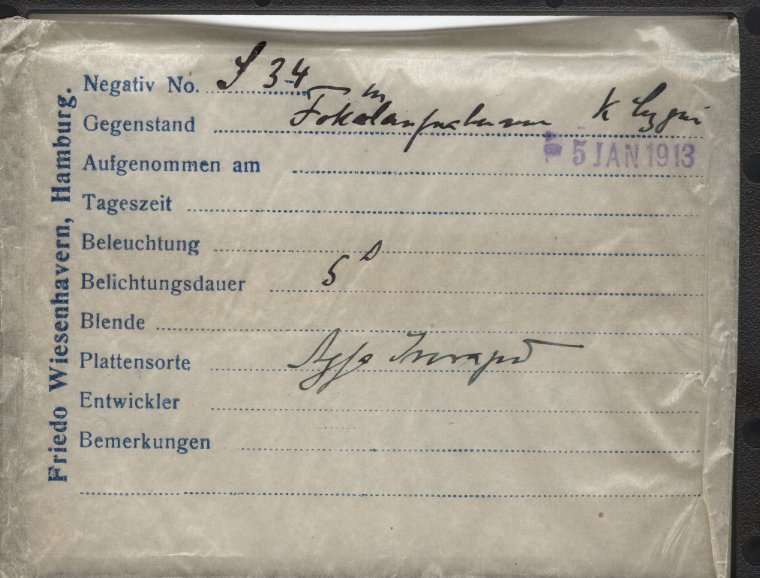 Friedo Wiesenhavern, Hamburg.
Negativ No. S 34
Gegenstand Fokalaufnahmen
Aufgenommen am 5 JAN 1913
Tageszeit
Beleuchtung
Belichtungsdauer 5
Blende
Plattensorte Agfa
Entwickler
Bemerkungen